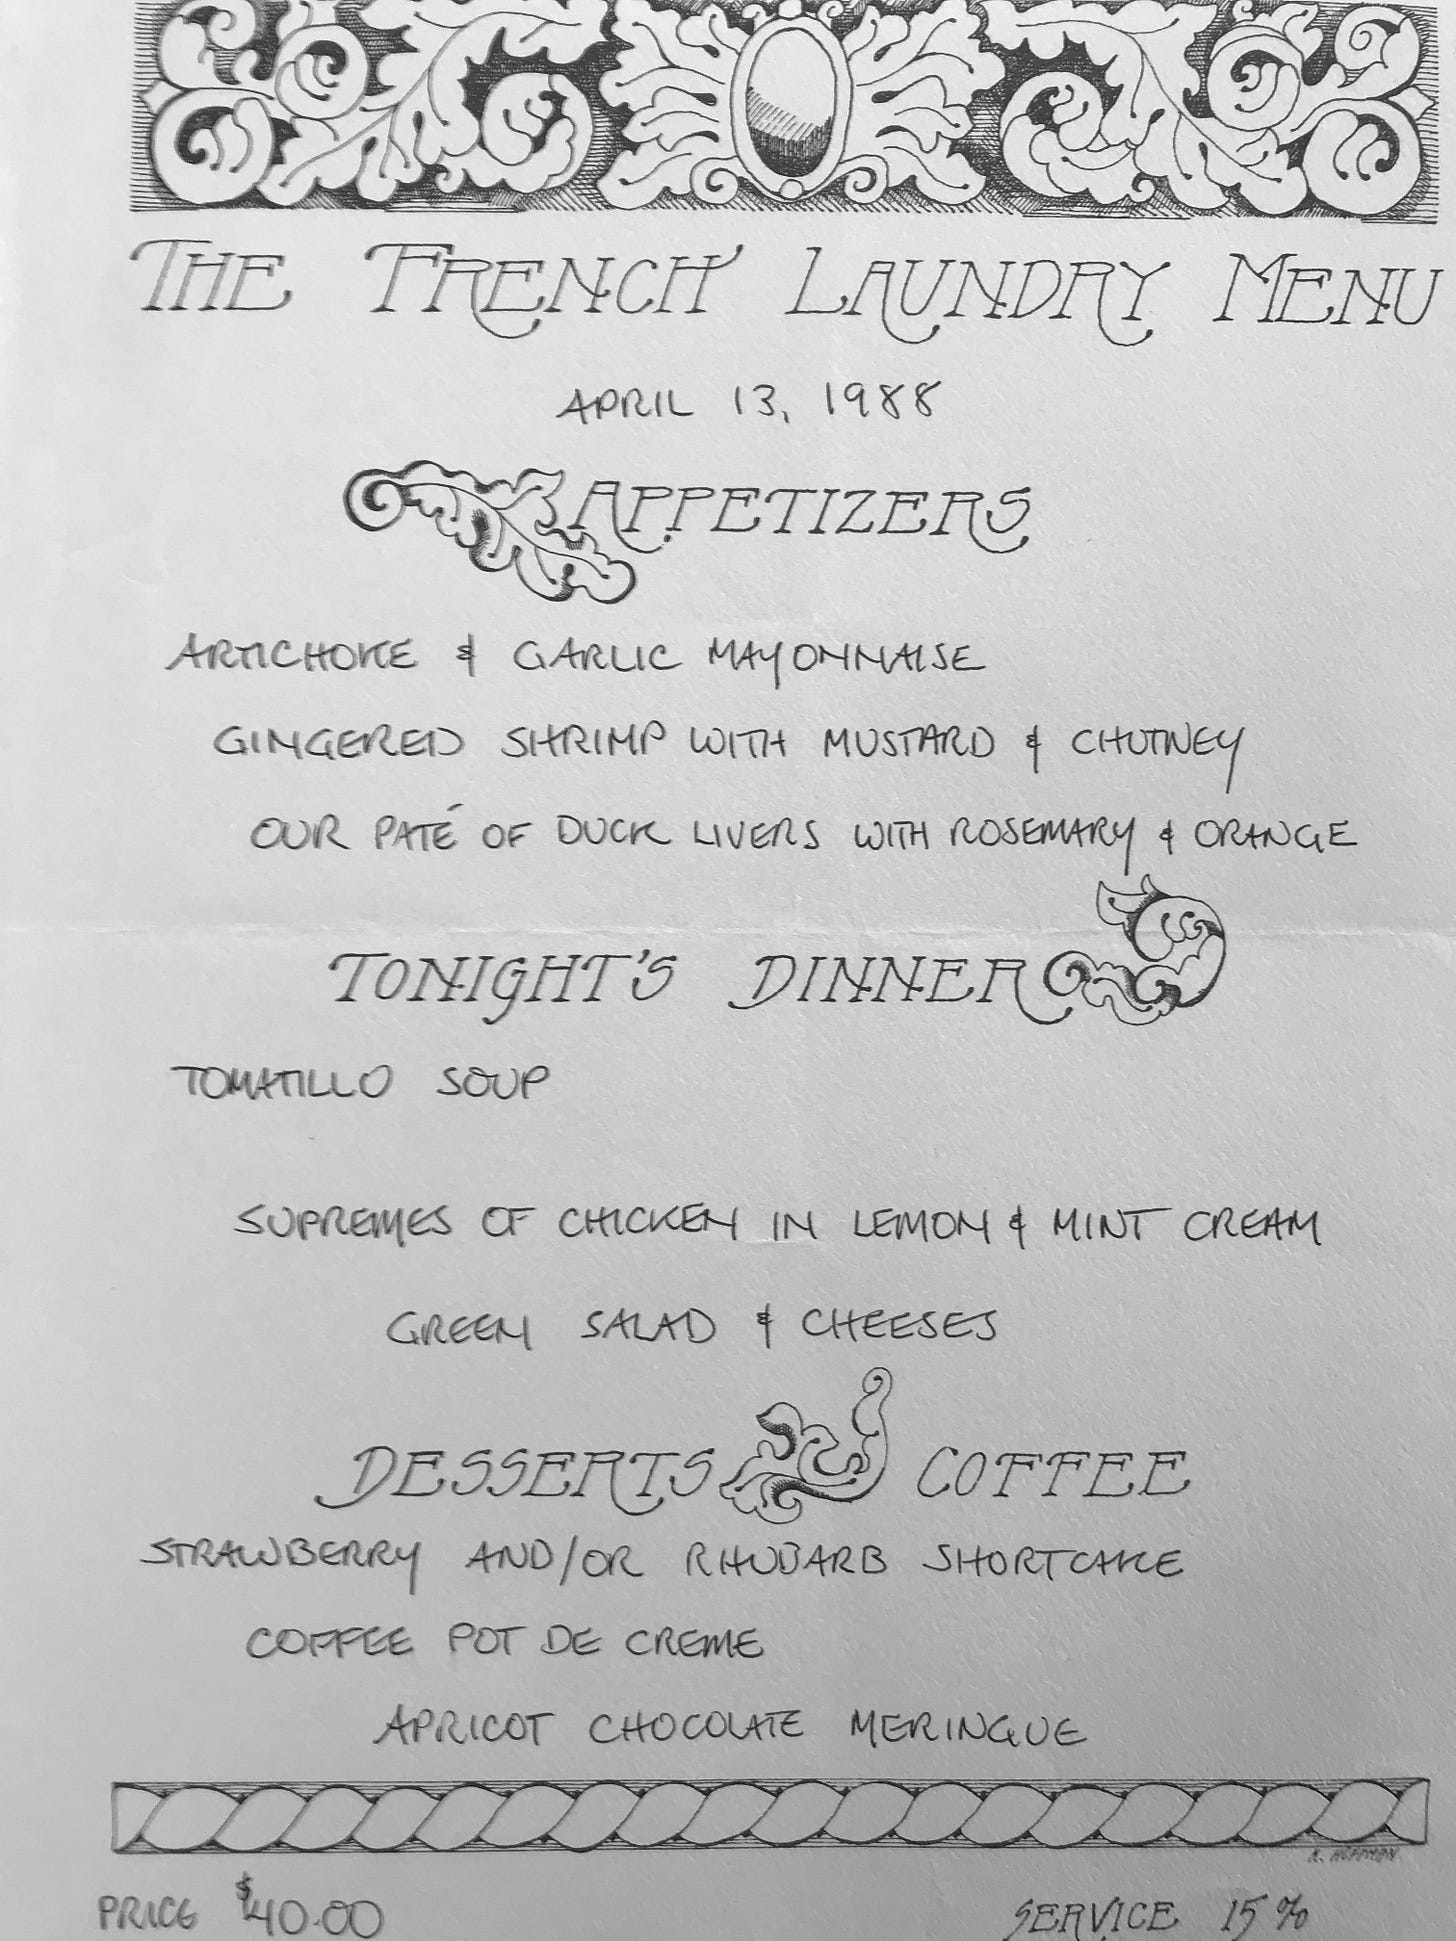 THE FRENCH LAUNDRY MENU
APRIL 13, 1988
APPETIZERS
ARTICHOKE & GARLIC MAYONNAISE
GINGERED SHRIMP WITH MUSTARD & CHUTNEY
OUR PATÉ OF DUCK LIVERS WITH ROSEMARY & ORANGE
TONIGHT'S DINNER
TOMATILLO SOUP
SUPREMES OF CHICKEN IN LEMON & MINT CREAM
GREEN SALAD & CHEESES
DESSERTS COFFEE
STRAWBERRY AND/OR RHUBARB SHORTCAKE
COFFEE POT DE CREME
APRICOT CHOCOLATE MERINGUE
K. HOFFMAN
PRICE $40.00 SERVICE 15%